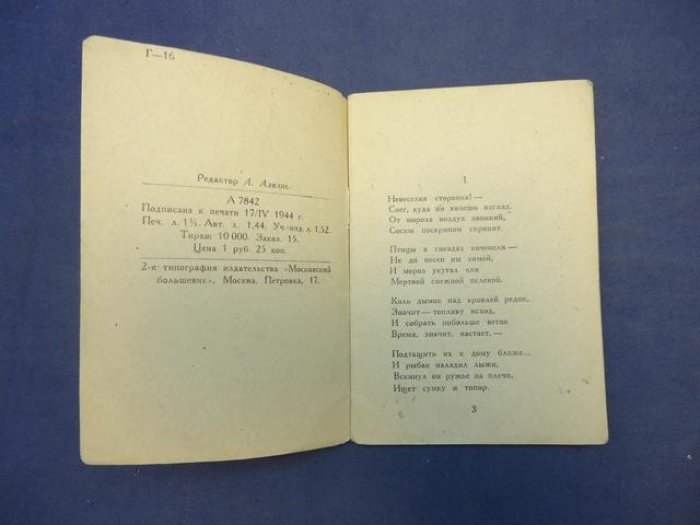 Г—16
Редактор А. Адалис.
А 7842
Подписана к печати 17/IV 1944 г.
Печ. л. 1¼. Авт. л. 1,44. Уч-изд. л. 1,52.
Тираж 10 000. Заказ. 15.
Цена 1 руб. 25 коп.
2-я типография издательства «Московский
большевик», Москва, Петровка, 17.
1
Невеселая сторонка! —
Снег, куда ни кинешь взгляд.
От мороза воздух звонкий,
Сосны поскрипом скрипят.
Птицы в гнездах коченели —
Не до песен им зимой,
И мороз укутал ели
Мертвой снежной пеленой.
Коль дымок над кровлей редок,
Значит — топливу исход,
И собрать побольше веток
Время, значит, настает, —
Подтащить их к дому ближе...
И рыбак наладил лыжи,
Вскинул он ружье на плечи,
Ищет сумку и топор.
3